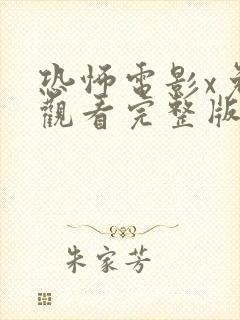 恐怖電影x
觀看完整版
朱家芳